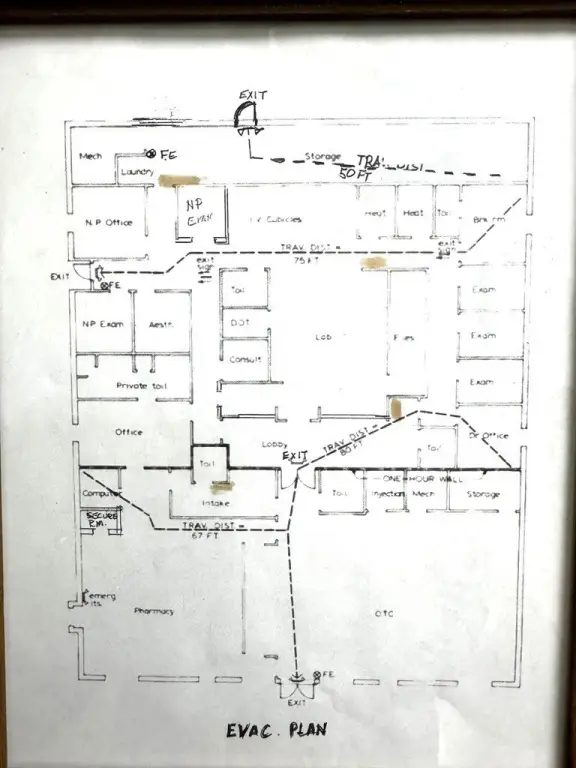 EXIT
Mech
F.E
Laundry
Storage
TRAV. DIST
50 FT
N.P Office
NP
EXAM
I.V. Cubicles
Heat
Heat
Toil
Brk rm
TRAV. DIST =
75 FT
exit
sign
exit
sign
EXIT
F.E
Toil
Exam
NP Exam
Aesth.
DOT
Lab
Files
Exam
Consult
Private toil
Exam
Office
Lobby
EXIT
TRAV. DIST =
80 FT
Toil
Dr Office
Toil
ONE-HOUR WALL
Computer
Intake
Toil
Injection
Mech
Storage
SECURE
RM.
TRAV. DIST =
67 FT
emerg
Pharmacy
OTC
F.E
EXIT
EVAC. PLAN